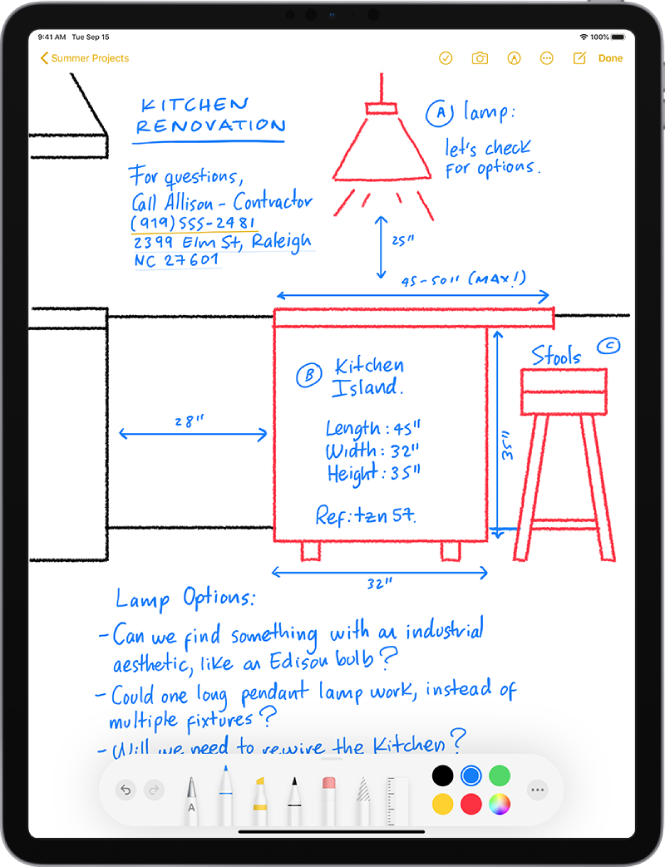 9:41 AM Tue Sep 15
100%
Summer Projects
Done
KITCHEN
RENOVATION
For questions,
Call Allison - Contractor
(919) 555-2481
2399 Elm St, Raleigh
NC 27601
A lamp:
let's check
for options.
25"
45-50" (MAX!)
B Kitchen
Island.
Length: 45"
Width: 32"
Height: 35"
Ref: tzn 57.
28"
35"
Stools C
32"
Lamp Options:
- Can we find something with an industrial
aesthetic, like an Edison bulb?
- Could one long pendant lamp work, instead of
multiple fixtures?
- Will we need to rewire the kitchen?
A